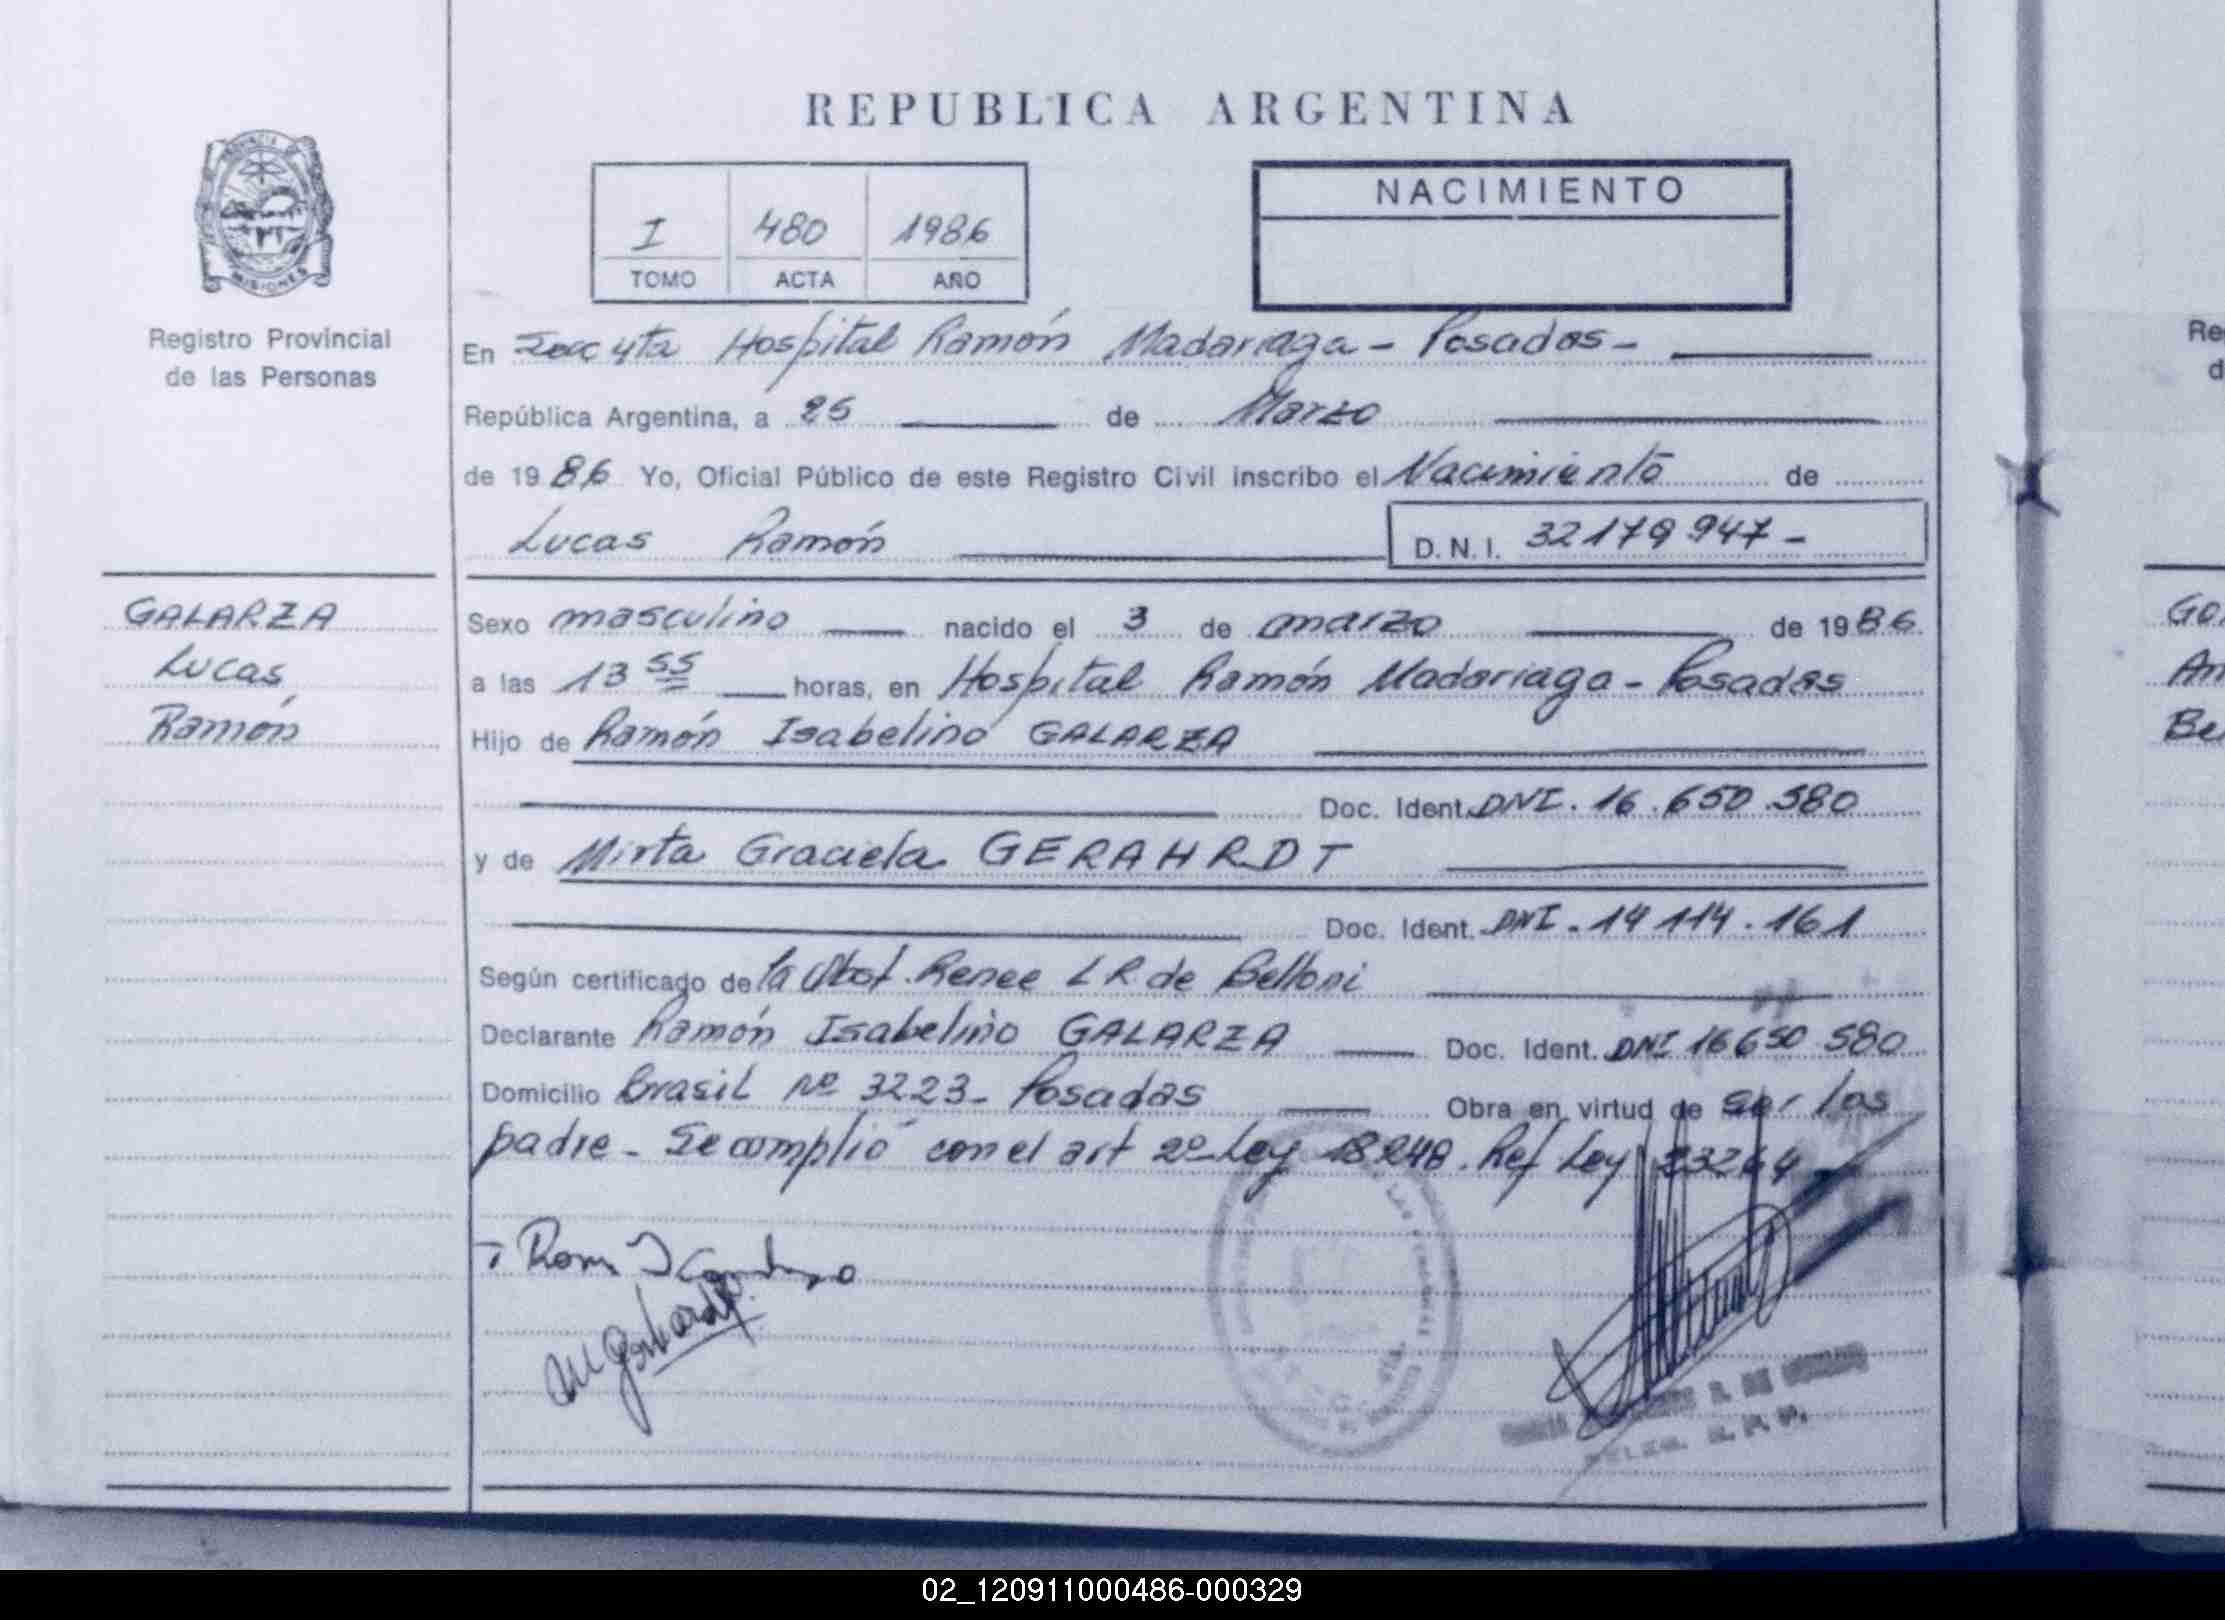 REPUBLICA ARGENTINA
PROVINCIA DE
MISIONES
Registro Provincial
de las Personas
I 480 1986
TOMO ACTA AÑO
NACIMIENTO
En Secc 4ta Hospital Ramón Madariaga - Posadas -
República Argentina, a 25 de Marzo
de 1986 Yo, Oficial Público de este Registro Civil inscribo el Nacimiento de
Lucas Ramón D. N. I. 32179947 -
GALARZA
Lucas
Ramón
Sexo masculino nacido el 3 de marzo de 1986
a las 13 55 horas, en Hospital Ramón Madariaga - Posadas
Hijo de Ramón Isabelino GALARZA
Doc. Ident. DNI. 16.650.580
y de Mirta Graciela GERAHRDT
Doc. Ident. DNI. 14 114.161
Según certificado de la Obst. Renee L R de Belloni
Declarante Ramón Isabelino GALARZA Doc. Ident. DNI 16650 580
Domicilio Brasil Nº 3223 - Posadas Obra en virtud de ser los
padre - Se complió con el art 2º Ley 18248. Ref Ley 23264
Re
d
Go
An
Be
02_120911000486-000329